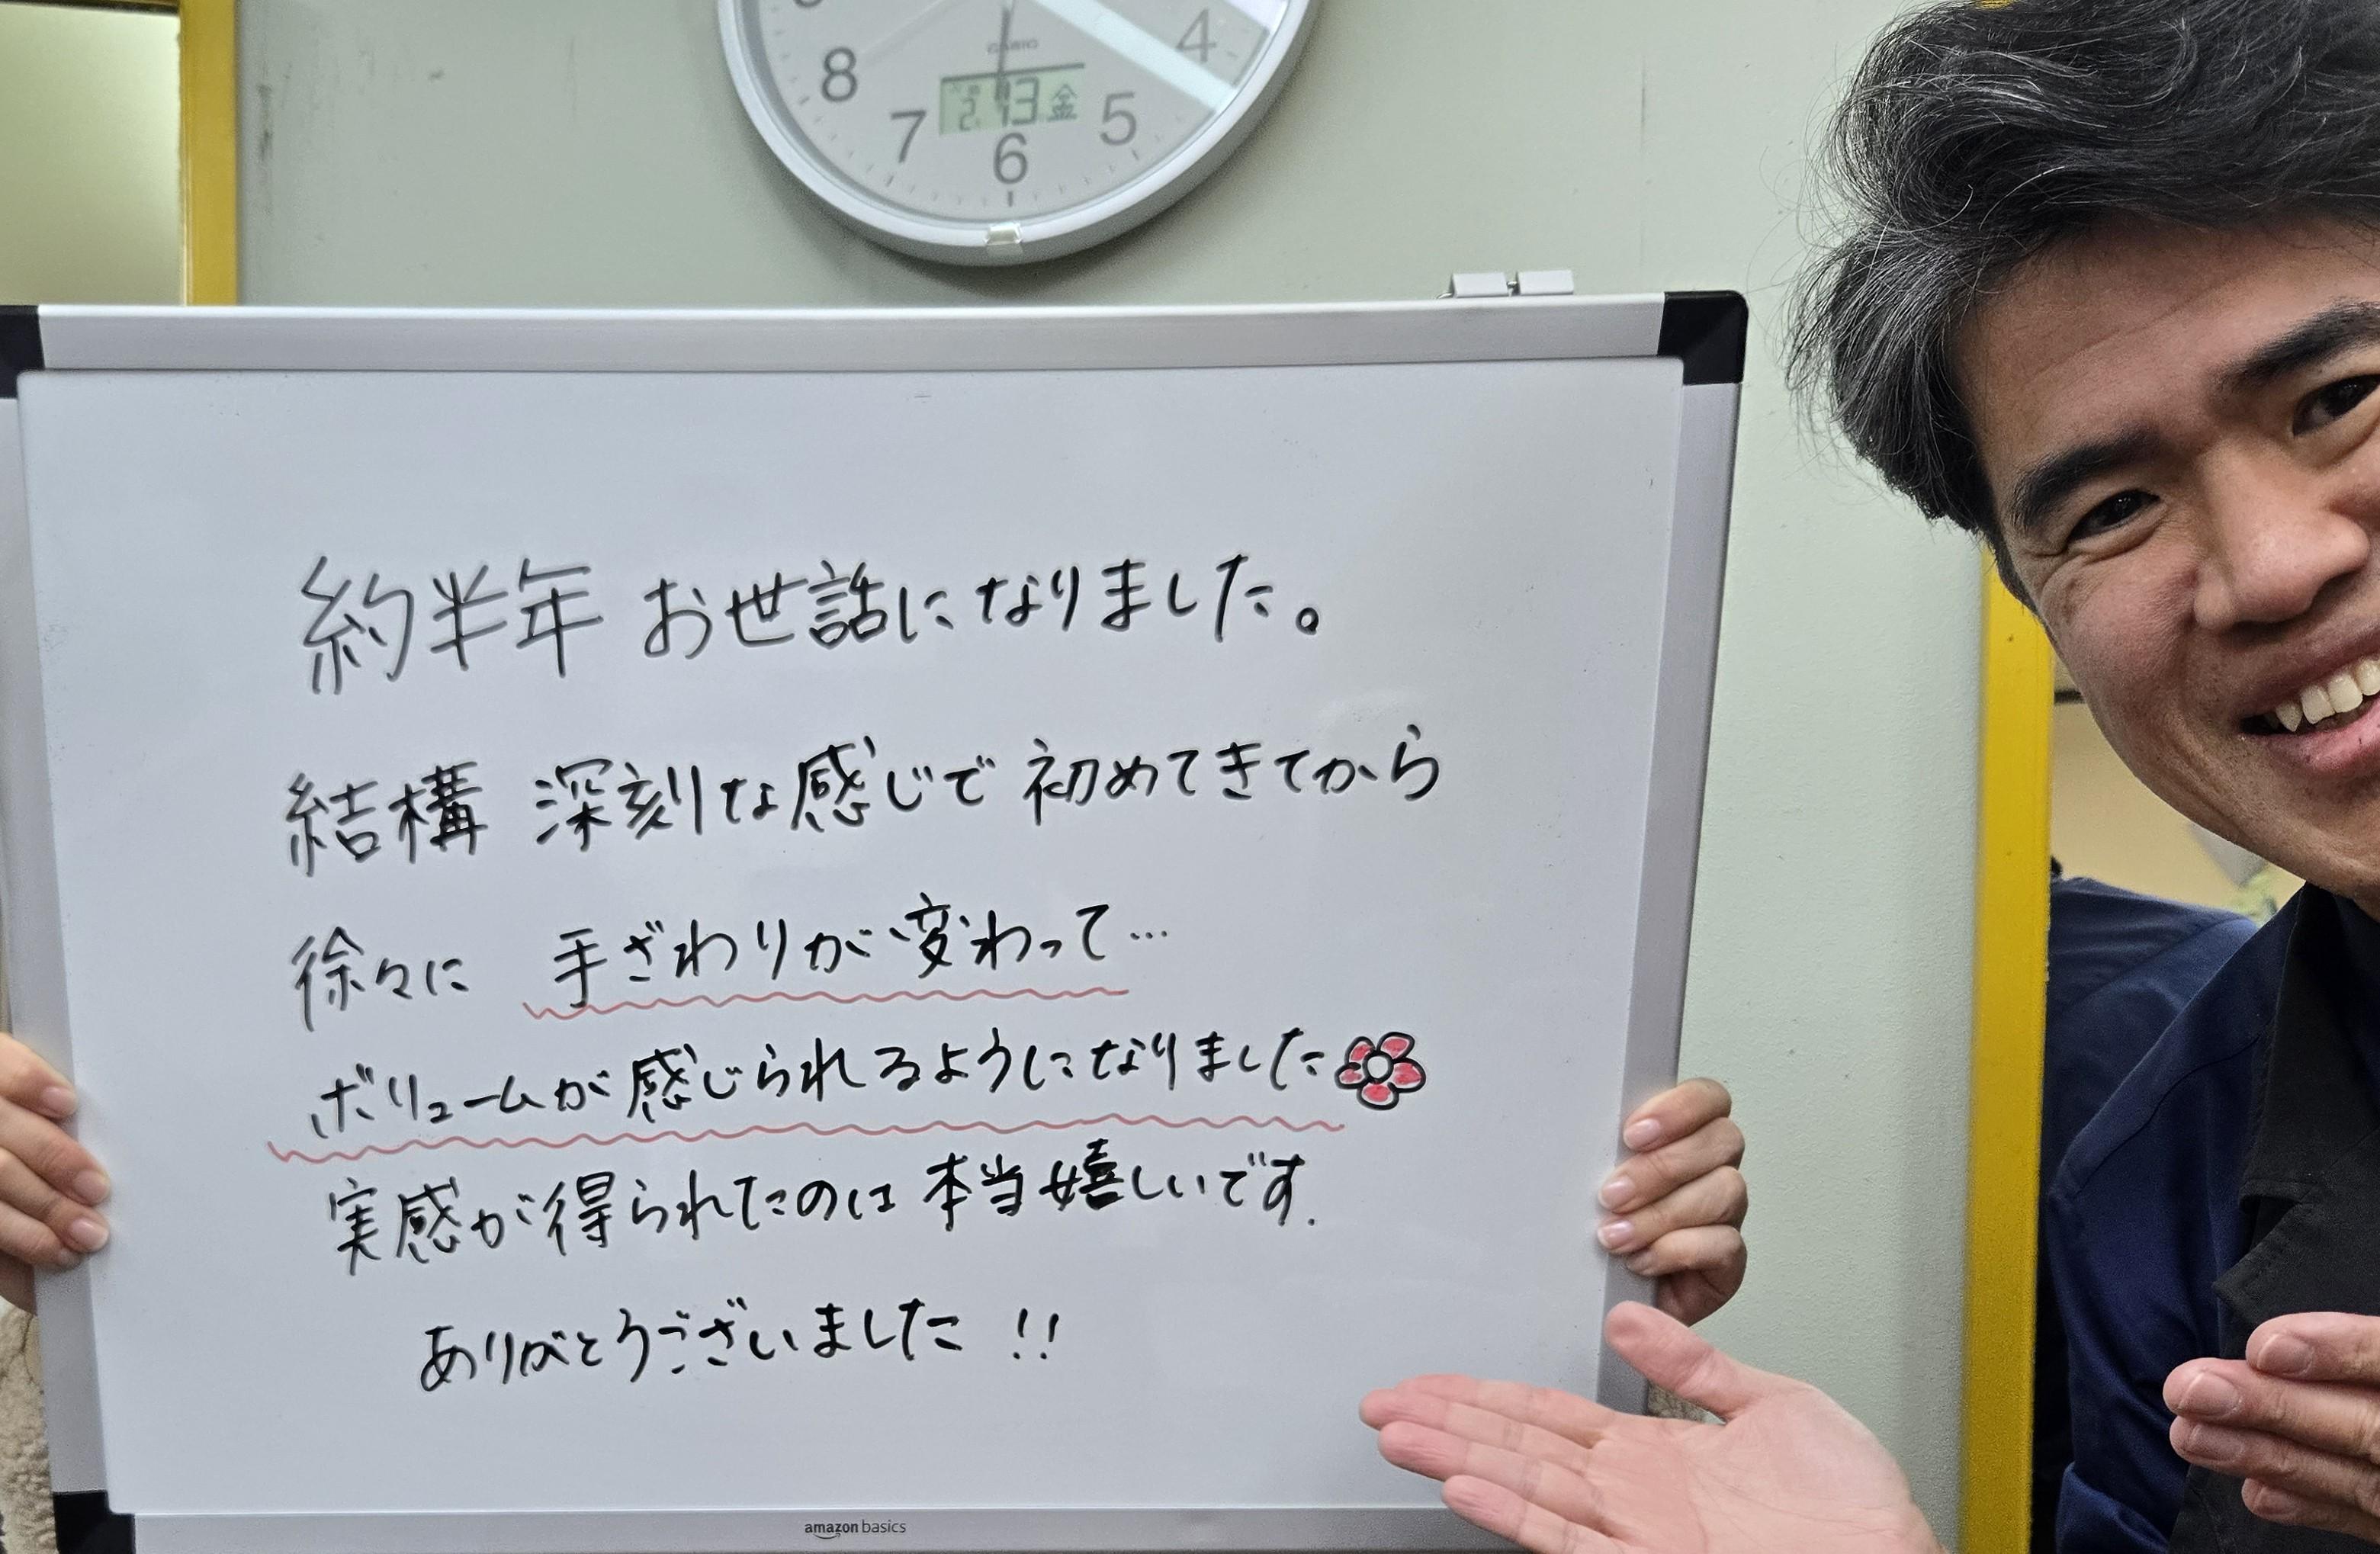 8 4
7 6 5
CASIO
2.13 金
約半年 お世話になりました。
結構 深刻な感じで 初めてきてから
徐々に 手ざわりが変わって…
ボリュームが感じられるようになりました
実感が得られたのは 本当嬉しいです.
ありがとうございました !!
amazon basics